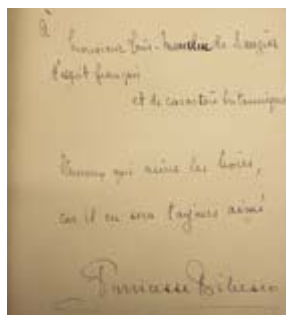 à
Monsieur
l'esprit français
et de caractère britannique
qui aime les livres,
car il en sera toujours aimé
Princesse Bibesco